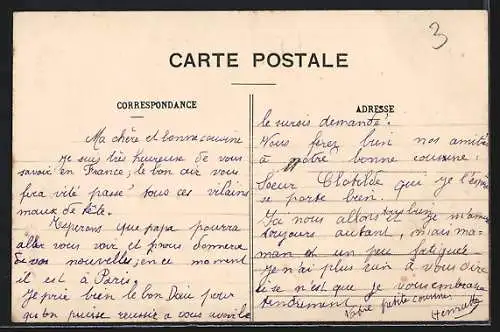 3
CARTE POSTALE
CORRESPONDANCE
Ma chère et bonne cousine
Je suis très heureuse de vous
savoir en France, le bon air vous
fera vite passé tous ces vilains
maux de tête.
J'espérons que papa pourra
aller vous voir et nous donnera
de vos nouvelles, en ce moment
il est à Paris.
Je prie bien le bon Dieu pour
qu'on puisse reussir a vous avoir
ADRESSE
le sursis demandé.
Vous ferez bien nos amitiés
à notre bonne cousine,
Soeur Clotilde qui je l'espère
se porte bien.
Ici nous allons très bien je m'amuse
toujours autant, mais ma-
man est un peu fatiguée
Je n'ai plus rien à vous dire
si ce n'est que je vous embrasse
tendrement
Votre petite cousine
Henriette